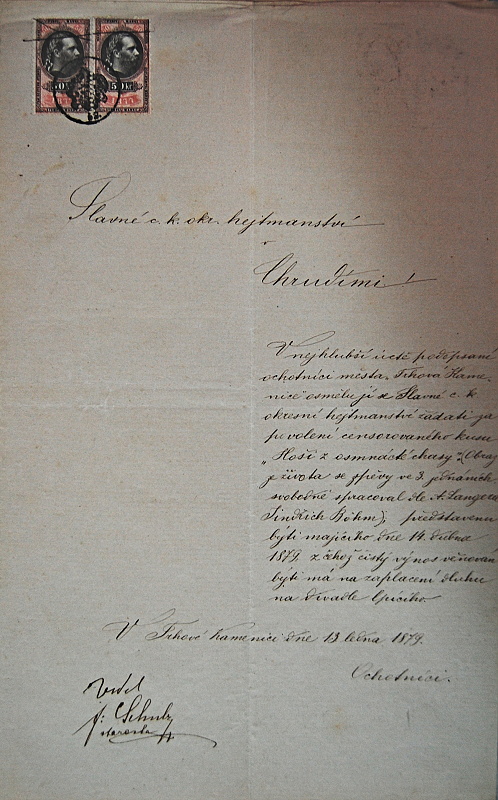 50 kr
Slavné c. k. okr. hejtmanství
v
Chrudimi!
V nejhlubší úctě podepsaní
ochotníci města „Trhová Kame-
nice“ osmělují se Slavné c. k.
okresní hejtmanství žádati za
povolení censorovaného kusu
„Hoši z osmnácté chasy“ (Obraz
ze života se zpěvy ve 3 jednáních
svobodně spracoval dle A. Langera
Jindřich Böhm), představenu
býti majícího dne 14. dubna
1879, z čehož čistý výnos věnován
býti má na zaplacení dluhu
na divadle lpícího.
V Trhové Kamenici dne 13 ledna 1879.
Ochotníci.
Viděl
Schulz
starosta